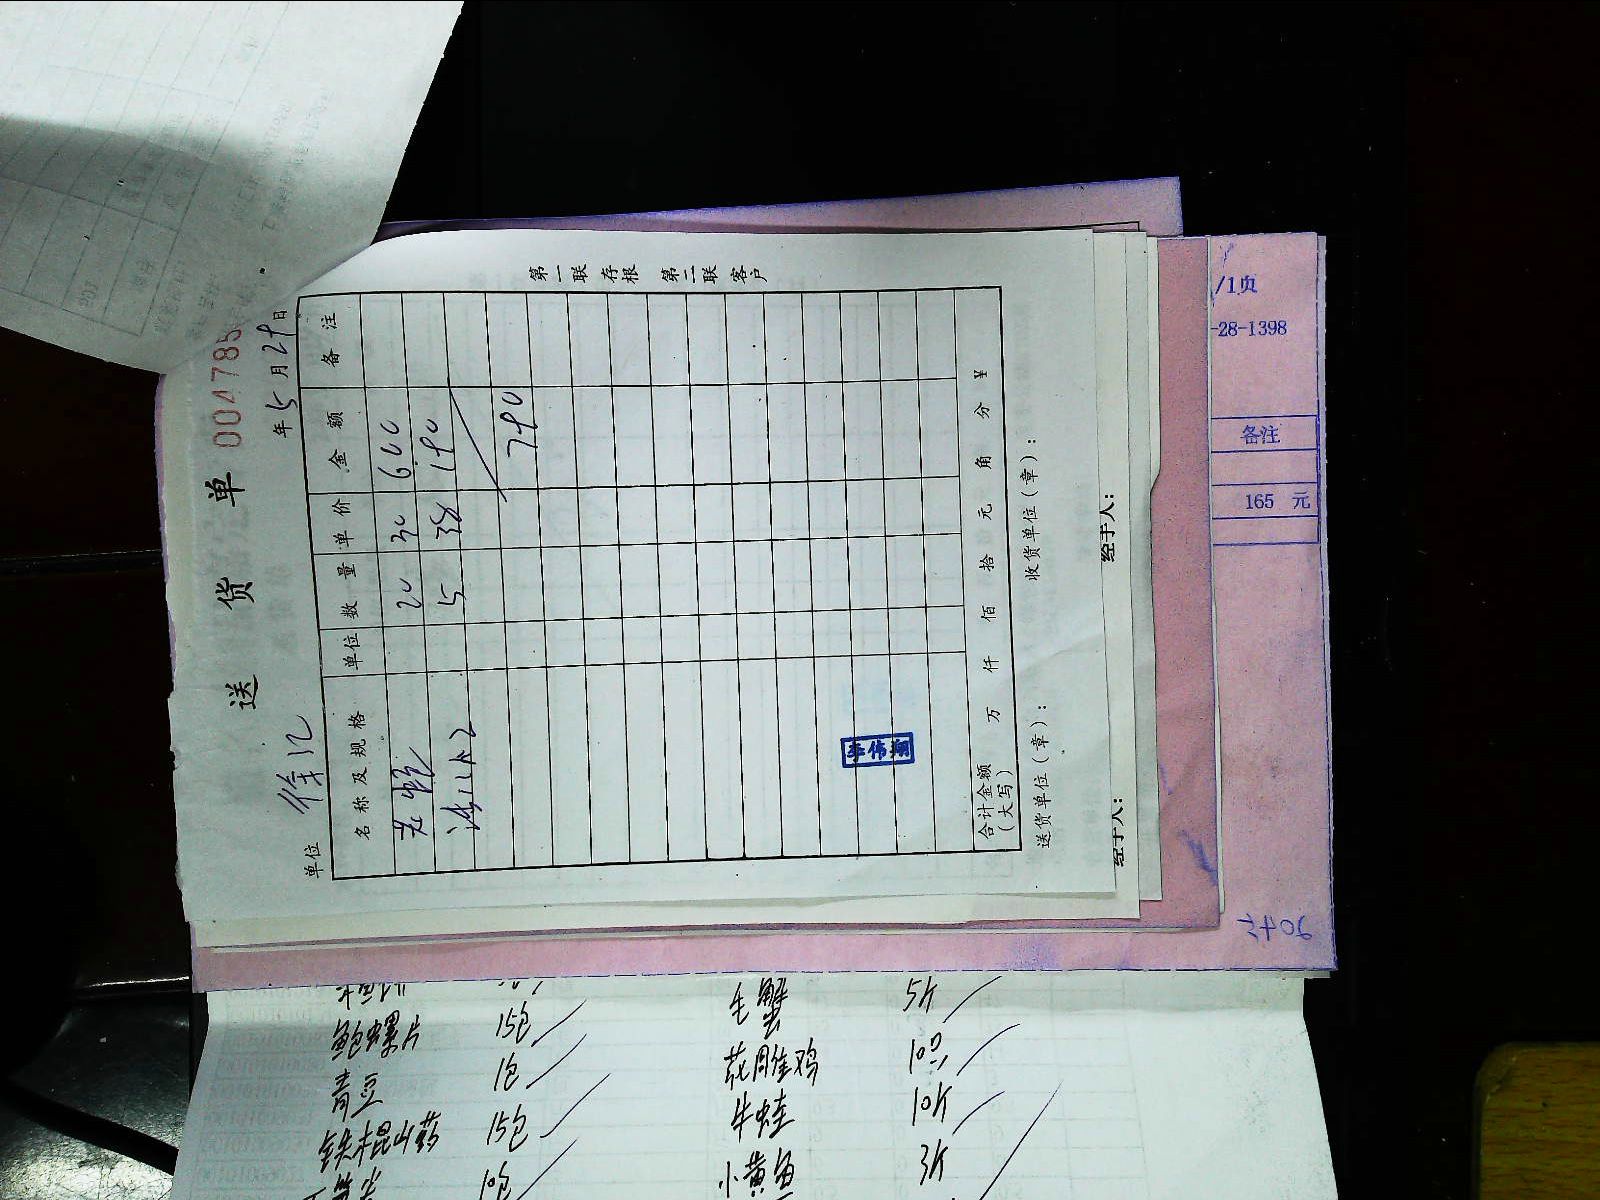 送货单 004785
单位 徐记 年5月29日
名称及规格 单位 数量 单价 金额 备注
20 30 600
5 38 190
790
李伟翔
合计金额(大写) 万 仟 佰 拾 元 角 分 ¥
送货单位(章): 收货单位(章):
经手人: 经手人:
第一联 存根 第二联 客户
/1页
-28-1398
备注
165 元
毛蟹 5斤
鲍螺片 15包
花雕鸡 10只
青豆 1包
牛蛙 10斤
铁棍山药 15包
小黄鱼 3斤
10包